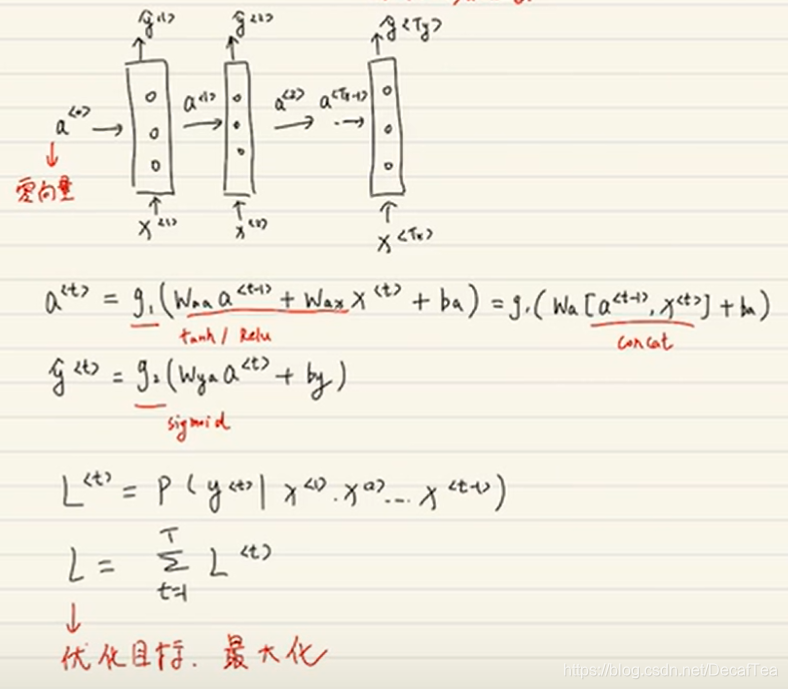 ŷ<1> ŷ<2> ŷ<Ty>
a<0> → a<1> → a<2> → a<Tx-1> →
零向量
x<1> x<2> x<Tx>
a<t> = g₁(Waa a<t-1> + Wax x<t> + ba) = g₁(Wa[a<t-1>, x<t>] + ba)
tanh / Relu concat
ŷ<t> = g₂(Wya a<t> + by)
sigmoid
L<t> = P(y<t> | x<1>. x<2>... x<t-1>)
L = Σ L<t>
T
t=1
优化目标. 最大化
https://blog.csdn.net/DecafTea